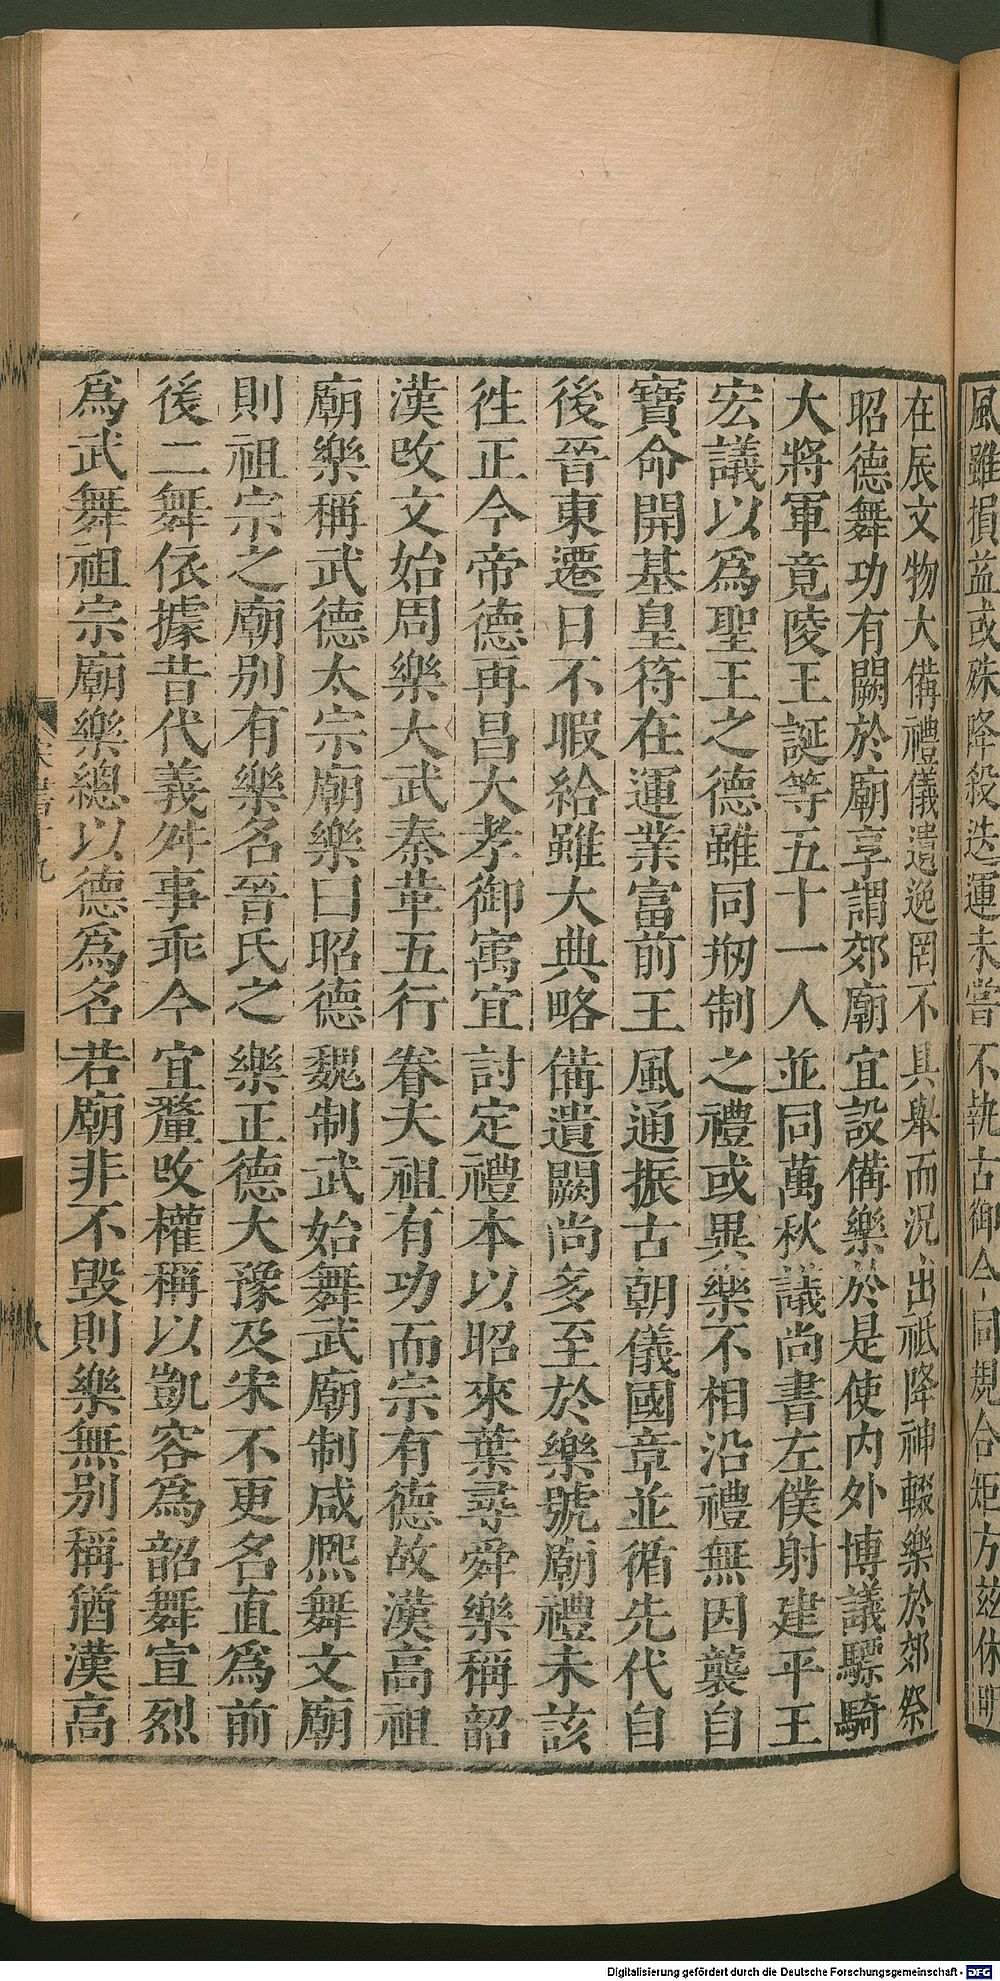 風雖損益或殊降殺迭運未嘗不執古御今同規合矩方兹休明
在辰文物大備禮儀遺逸罔不具舉而況出祇降神輟樂於郊祭
昭德舞功有闕於廟享謂郊廟宜設備樂於是使内外博議驃騎
大將軍竟陵王誕等五十一人並同萬秋議尚書左僕射建平王
宏議以爲聖王之德雖同剏制之禮或異樂不相沿禮無因襲自
寶命開基皇符在運業富前王風通振古朝儀國章並循先代自
後晉東遷日不暇給雖大典略備遺闕尚多至於樂號廟禮未該
徃正今帝德再昌大孝御寓宜討定禮本以昭來葉尋舜樂稱韶
漢改文始周樂大武秦革五行眷夫祖有功而宗有德故漢高祖
廟樂稱武德太宗廟樂曰昭德魏制武始舞武廟制咸熈舞文廟
則祖宗之廟别有樂名晉氏之樂正德大豫及宋不更名直爲前
後二舞依據昔代義舛事乖今宜釐改權稱以凱容爲韶舞宣烈
爲武舞祖宗廟樂總以德爲名若廟非不毁則樂無别稱猶漢高
宋書十九
八
Digitalisierung gefördert durch die Deutsche Forschungsgemeinschaft - DFG